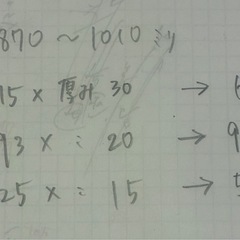 870 ~ 1010 ミリ
15 × 厚み 30 → 6
93 × : 20 → 9
25 × : 15 → 5